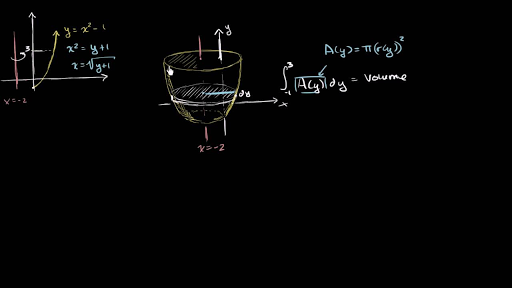 y = x² - 1
3
x² = y+1
x = √y+1
x = -2
y
dy
x
x = -2
A(y) = π(r(y))²
∫₋₁³ A(y) dy = Volume